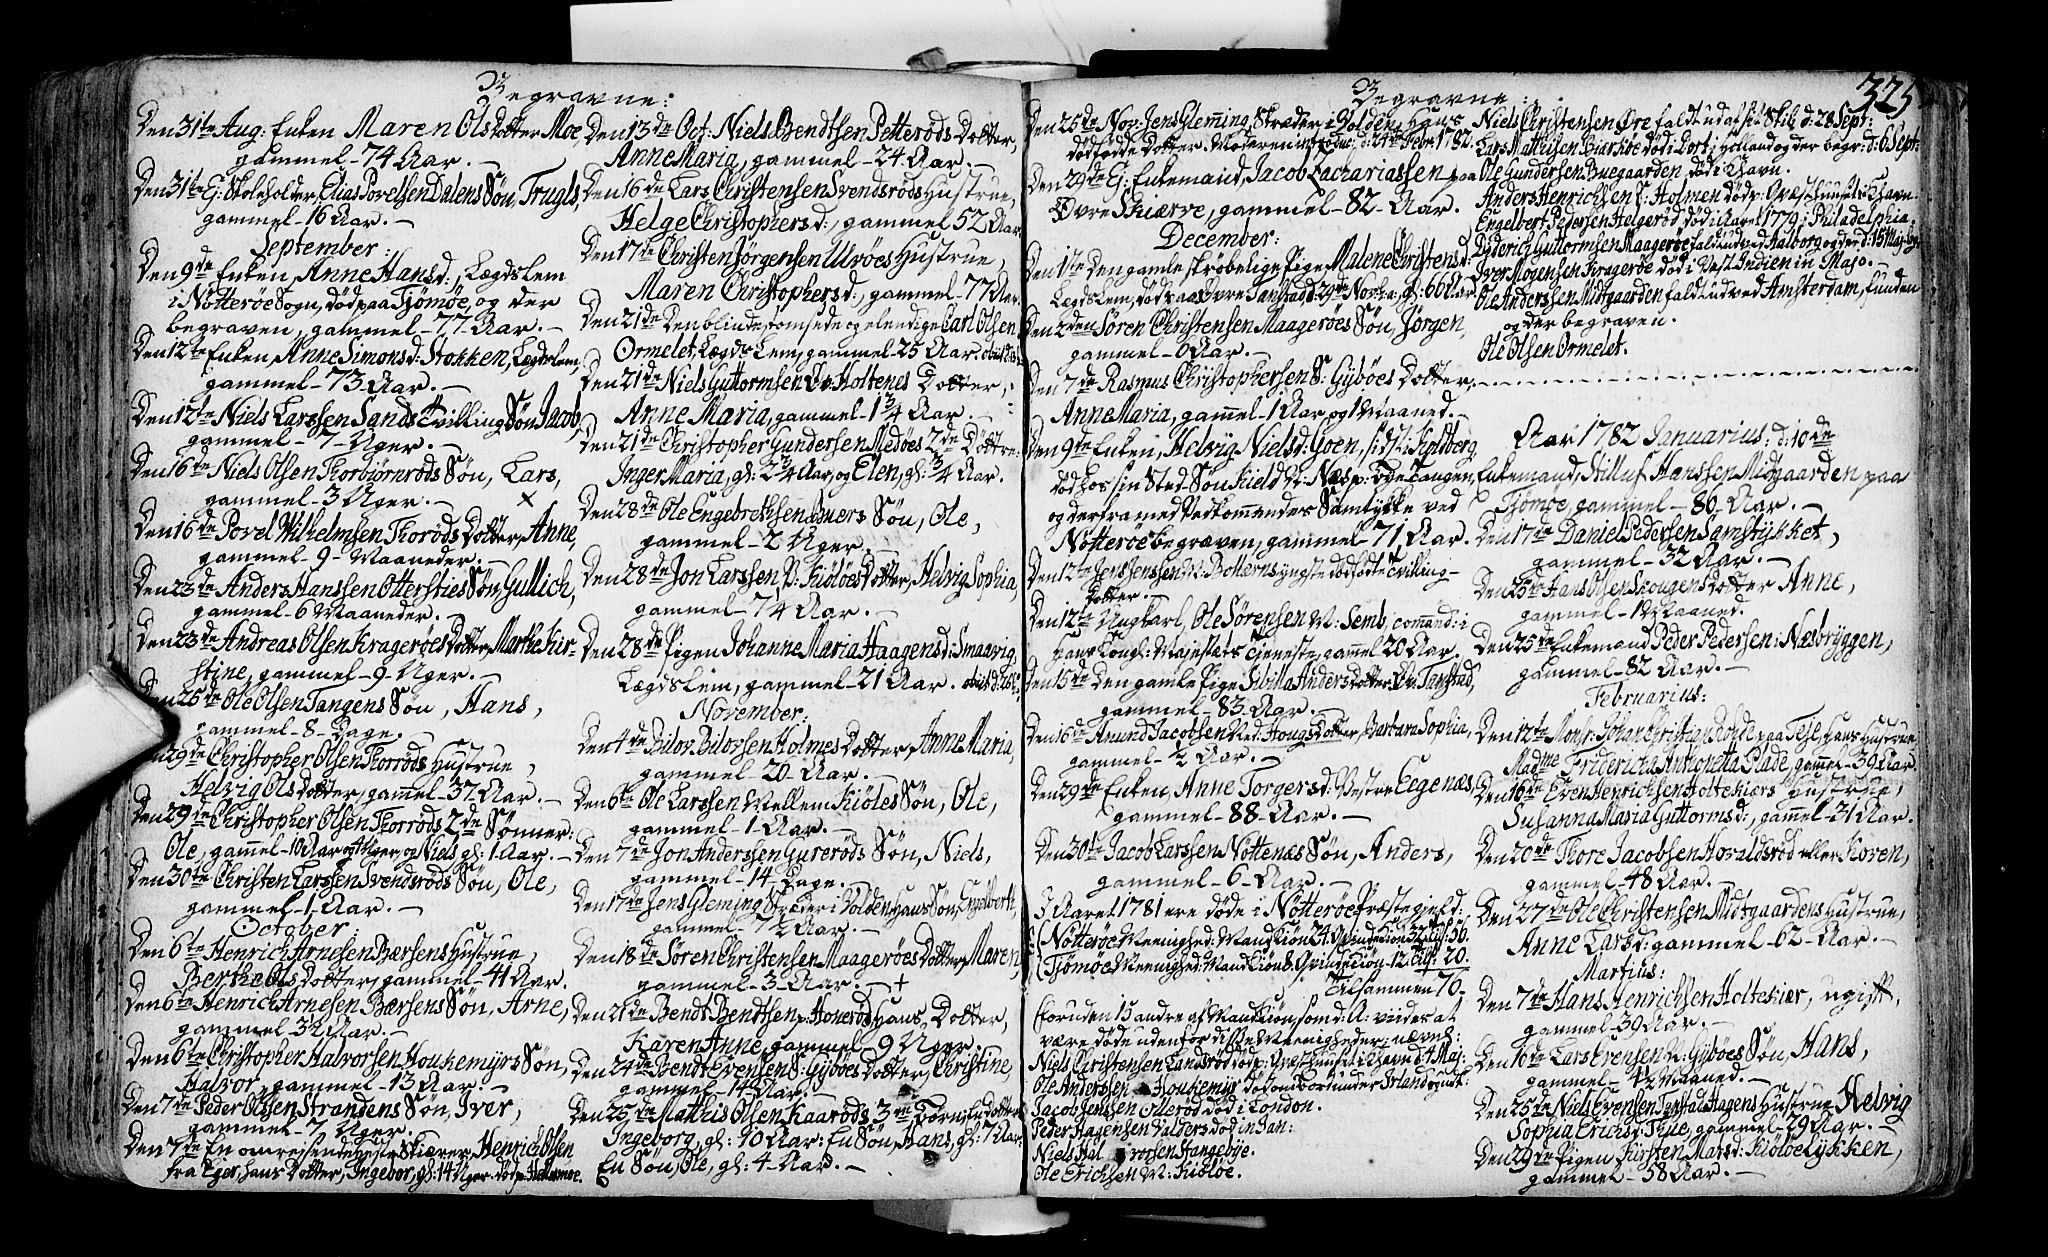 Begravne:
Den 31te Aug: Enken Maren Olsdotter Moe,
gammel - 74 Aar. -
Den 31te E: Skoleholder, Elias Povelsen Dalens Søn, Trugls,
gammel - 16 Aar. -
September:
Den 9de Enken, Anne Hansd:, Lægdslem
i Nøtterøe Sogn, død paa Tjømøe, og der
begraven, gammel - 77 Aar. -
Den 12te Enken, Anne Simonsd: Stokken, Lægdslem,
gammel - 73 Aar. -
Den 12te Niels Larssen Sands Tvilling Søn Jacob,
gammel - 7 - Uger. -
Den 16de Niels Olsen Thorbiørnrøds Søn, Lars,
gammel - 3 Uger. - x
Den 16de Povel Wilhelmsen Thorøds Dotter, Anne,
gammel - 9 - Maaneder. -
Den 23de Anders Hanssen Ottersties Søn, Gullich,
gammel - 6 Maaneder. -
Den 23de Andreas Olsen Kragerøes Dotter Marthe Kir-
stine, gammel - 9 - Uger. -
Den 25de Ole Olsen Tangens Søn, Hans,
gammel - 8 - Dage. -
Den 29de Christopher Olsen Thorrøds Hustrue,
Helvig Olsdotter, gammel - 37 - Aar. -
Den 29de Christopher Olsen Thorrøds 2de Sønner:
Ole, gammel - 10 Aar og Uger og Niels gl: 1 - Aar. -
Den 30te Christen Larssen Svendsrøds Søn, Ole,
gammel - 1 - Aar. -
October:
Den 6te Henrich Arnesen Bærsens Hustrue,
Berthe Olsdotter, gammel - 41 Aar.
Den 6te Henrich Arnesen Bærsens Søn, Arne,
gammel 3½ Aar. -
Den 6te Christopher Halvorsen Houkemyrs Søn,
Halvor, gammel - 13 Aar. -
Den 7de Peder Olssen Strandens Søn, Iver,
gammel - 7 Uger. -
Den 7de En omreisende Skiærer, Henrich Olsen
fra Eger, hans Dotter, Ingebor, gl: 14 Uger. død p:
Den 13de Oct: Niels Bendtsen Petterøds Dotter,
Anne Maria, gammel - 24 Aar. -
Den 16de Lars Christensen Svendsrøds Hustrue,
Helge Christophersd:, gammel 52 Aar
Den 17de Christen Jørgensen Ulvøes Hustrue,
Maren Christophersd:, gammel - 77 Aar.
Den 21de Den blinde og elendige Carl Olsen
Ormelet, Lægdslem, gammel - 25 Aar.
Den 21de Niels Guttormsen Øv: Holtenes Dotter,
Anne Maria, gammel - 1¾ Aar. -
Den 21de Christopher Gundersen Medøes 2de Døttre:
Inger Maria, gl: 2¾ Aar, og Elen, gl: ¾ Aar.
Den 28de Ole Engebrethsen Buers Søn, Ole,
gammel - 2 Uger. -
Den 28de Jon Larssen N: Kiøløes Dotter, Helvig Sophia,
gammel - 7¼ Aar. -
Den 28de Pigen Johanne Maria Haagensd: Smaavig,
Lægdslem, gammel - 21 Aar.
November:
Den 4de Bilov: Bilovsen Holmes Dotter, Anne Maria,
gammel - 20 - Aar. -
Den 6te Ole Larssen Mellem Kiøles Søn, Ole,
gammel - 1 - Aar. -
Den 7de Jon Anderssen Gurerøds Søn, Niels,
gammel - 14 - Dage. -
Den 17de Jens Gleming Skræder i Bolden, hans Søn, Engelberth,
gammel - 7½ Aar. -
Den 18de Søren Christensen Maagerøes Dotter, Maren,
gammel - 3 - Aar. - +
Den 21de Bendt Bendtsen p: Honerød hans Dotter,
Karen Anne, gammel - 9 Uger. -
Den 24de Bendt Evensen S: Gyb̈øes Dotter, Christine,
gammel - 14 - Aar. -
Den 25de Mathis Olsen Kaarøds 3de Børn, En dotter,
Ingeborg, gl: 10 Aar: En Søn, Hans, gl: 7 Aar
En Søn, Ole, gl: 4 - Aar. -
Begravne:
325
Den 25de Nov: Jens Gleming, Skræder i Bolden, hans
dødfødte Dotter. Moderen introduc: d: Febr: 1782.
Den 29de E: Enkemand, Jacob Zachariassen paa
Øvre Skiærve, gammel - 82 - Aar.
December:
Den 1ste Den gamle skrøbelige Pige, Malene Christensd:
Lægdslem, død paa Øvre Tanstad d: 29de Novbr: gl: 60 Aar.
Den 2den Søren Christensen Maagerøes Søn, Jørgen,
gammel - 0 Aar. -
Den 7de Rasmus Christophersen S: Gybøes Dotter,
Anne Maria, gammel - 1 Aar og 1 Maaned. -
Den 9de Enken, Helvig Nielsd: Goen,
død hos sin Sted-Søn Kield N: Næs p: Tangen,
og derfra med Vedkommendes Samtykke ved
Nøtterøe begraven, gammel - 71 Aar.
Den 12te Jens Jenssen N: Bottærns yngste dødfødte Tvilling-
Dotter. -
Den 12te Ungkarl, Ole Sørensen N: Semb, comand: i
hans Kongl: Majestæts Tjeneste, gamel 20 Aar.
Den 15de Den gamle Pige Sibilla Andersdotter Øv: Tanstad,
gammel - 83 - Aar. -
Den 16de Amund Jacobsen Ned: Hougs Dotter, Barbara Sophia,
gammel - ½ Aar. -
Den 29de Enken, Anne Torgersd: Vestre Eegenæs,
gammel - 88 - Aar. -
Den 30te Jacob Larssen Nøttenæs Søn, Anders,
gammel - 6 - Aar. -
I Aaret 1781 ere døde i Nøtterøe Præstegield:
(Nøtterøe Meenighed: Mandkiøn 24. Qvindekiøn 32. tils: 56.
(Tjømøe Meenighed: Mandkiøn 8. Qvindekiøn - 12. tils: 20.
Tilsammen 76.
foruden 15 andre af Mandkiøn, som d: A: vides at
være døde udenfor disse Meenigheder, nævnl:
Niels Christensen Landsrød død p: Qvæsthuuset i Khavn d: 4 Maj:
Ole Anderssen Houkemyr død ombord under Irland
Jacob Jenssen Ellerød død i London.
Peder Hagensen Valders død in Jan:
Niels Halvorsen Hangebye.
Ole Erichsen N: Kiøløe.
Niels Christensen Øre faldt ud af sit Skib d: 28 Sept:
Lars Mathisen Biærkøe død i Dort i Holland og der begr: d: 6 Sept:
Ole Gundersen Buegaarden, død i Khavn.
Anders Henrichsen p: Holmen død p: Qvæsthuuset i Khavn.
Engelbret Pedersen Helgerød, død i Aaret 1779 i Philadelphia.
Dyderich Guttormsen Maagerøe faldt ud ved Aalborg og der d: 15 Maj begr:
Iver Mogensen Kragerøe død i Vest Indien in Majo. -
Ole Anderssen Midtgaarden faldt ud ved Amsterdam, funden
og der begraven.
Ole Olsen Ormelet.
Aar 1782 Januarius: d: 10de
Enkemand, Hilluf Hanssen Midtgaarden paa
Tjømøe, gammel - 80 - Aar. -
Den 17de Daniel Pedersen Samstykket,
gammel - 32 Aar. -
Den 25de Hans Olsen Skougens Dotter Anne,
gammel - 1 Maaned.
Den 25de Enkemand Peder Pedersen: Næsbryggen,
gammel - 82 Aar. -
Februarius:
Den 12te Monsr: Johan Christian Rohde paa Fejl, hans Hustrue,
Madme Fridericia Antonetta Plade, gammel - 39 Aar.
Den 16de Even Henrichsen Holtekiærs Hustrue,
Susanna Maria Guttormsd:, gammel - 31 Aar.
Den 20de Thore Jacobsen Horaldsrød eller Koren,
gammel - 48 Aar. -
Den 27de Ole Christensen Midtgaardens Hustrue,
Anne Larsd: gammel - 62 - Aar. -
Martius:
Den 7de Hans Henrichsen Holtekiær, ugift,
gammel - 39 Aar. -
Den 10de Lars Evensen N: Gybøes Søn, Hans,
gammel - 4½ Maaned. -
Den 25de Niels Evensen Tanstad Hagens Hustrue Helvig
Sophia Erichsd: True, gammel - 29 Aar. -
Den 29de Pigen Kirsten Matsd: Kiøløelykken,
gammel - 58 Aar. -